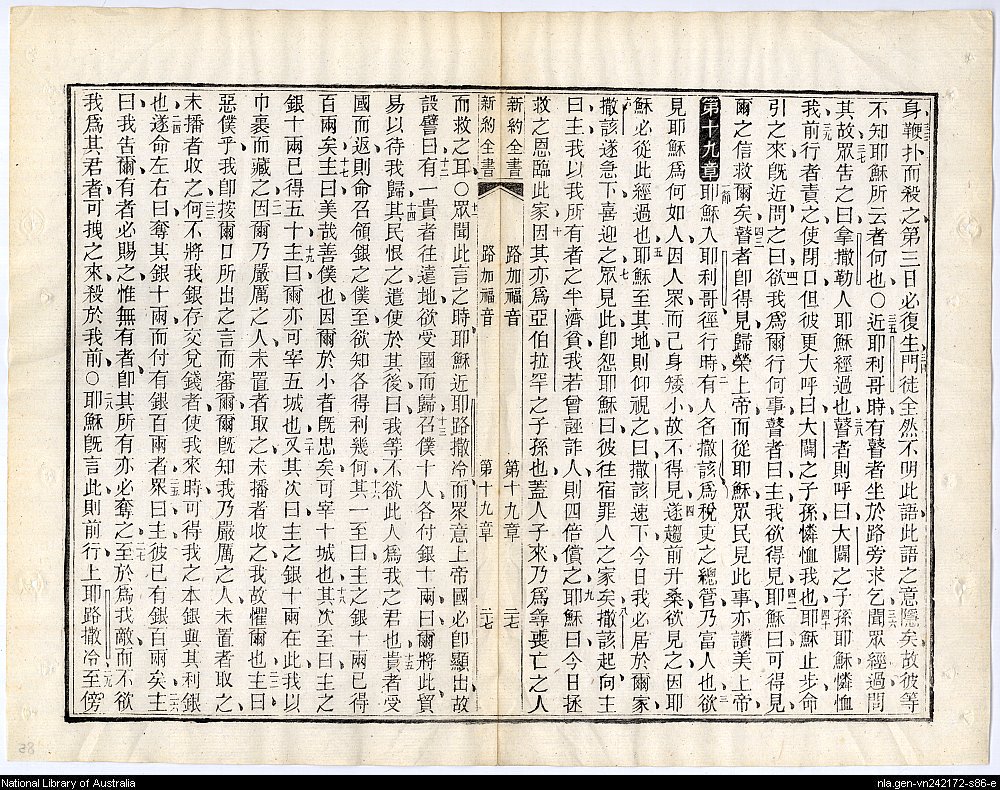 身鞭扑而殺之第三日必復生門徒全然不明此語此語之意隱矣故彼等
不知耶穌所云者何也○近耶利哥時有瞽者坐於路旁求乞聞眾經過問
其故眾告之曰拿撒勒人耶穌經過也瞽者則呼曰大闢之子孫耶穌憐恤
我前行者責之使閉口但彼更大呼曰大闢之子孫憐恤我也耶穌止步命
引之來旣近問之曰欲我爲爾行何事瞽者曰主我欲得見耶穌曰可得見
爾之信救爾矣瞽者卽得見歸榮上帝而從耶穌眾民見此事亦讚美上帝
第十九章 耶穌入耶利哥徑行時有人名撒該爲稅吏之總管乃富人也欲
見耶穌爲何如人因人眾而己身矮小故不得見遂趨前升桑欲見之因耶
穌必從此經過也耶穌至其地則仰視之曰撒該速下今日我必居於爾家
撒該遂急下喜迎之眾見此卽怨耶穌曰彼往宿罪人之家矣撒該起向主
曰主我以我所有者之半濟貧我若曾誣詐人則四倍償之耶穌曰今日拯
救之恩臨此家因其亦爲亞伯拉罕之子孫也蓋人子來乃爲尋喪亡之人
新約全書 路加福音 第十九章 三七
新約全書 路加福音 第十九章 三七
而救之耳○眾聞此言之時耶穌近耶路撒冷而眾意上帝國必卽顯出故
設譬曰有一貴者往遠地欲受國而歸召僕十人各付銀十兩曰爾將此貿
易以待我歸其民恨之遣使於其後曰我等不欲此人爲我之君也貴者受
國而返則命召領銀之僕至欲知各得利幾何其一至曰主之銀十兩已得
百兩矣主曰美哉善僕也因爾於小者旣忠矣可宰十城也其次至曰主之
銀十兩已得五十主曰爾亦可宰五城也又其次曰主之銀十兩在此我以
巾裹而藏之因爾乃嚴厲之人未置者取之未播者收之我故懼爾也主曰
惡僕乎我卽按爾口所出之言而審爾爾旣知我乃嚴厲之人未置者取之
未播者收之何不將我銀存交兌錢者使我來時可得我之本銀與其利銀
也遂命左右曰奪其銀十兩而付有銀百兩者眾曰主彼已有銀百兩矣主
曰我告爾有者必賜之惟無有者卽其所有亦必奪之至於爲我敵而不欲
我爲其君者可拽之來殺於我前○耶穌旣言此則前行上耶路撒冷至傍
58
National Library of Australia
nla.gen-vn242172-s86-e